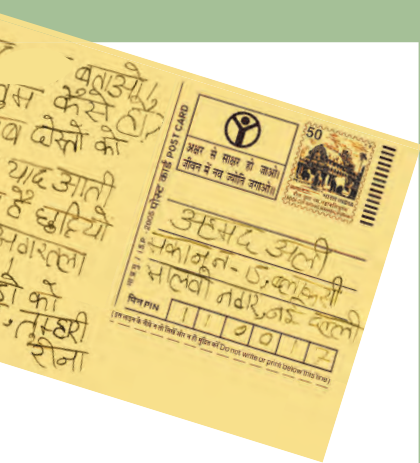 बताओ,
तुम कैसे हो
दोस्तों को
याद आती
है छुट्टियों
अगरतला
को
तुम्हारी
रीना
पोस्ट कार्ड POST CARD
अक्षर से साक्षर हो जाओ।
जीवन में नव ज्योति जगाओ॥
50
अहमद अली
मकान न.- 5, ब्लाक सी
मालवी नगर, नई दिल्ली
पिन PIN 110017
(इस लाइन के नीचे न तो लिखें और न ही मुद्रित करें Do not write or print below this line)